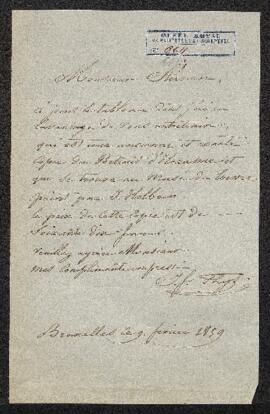 Monsieur
ci joint le tableau dont j'ai eu
l'avantage de vous entretenir,
qui est une ancienne et exacte
Copie du Portrait d'Erasme et
que se trouve au Musée du Louvre
peint par J. Holbein
le prix de cette copie est de
soixante dix francs
veuillez agréer Monsieur
mes compliments empressés
Bruxelles, le 9 fevrier 1859